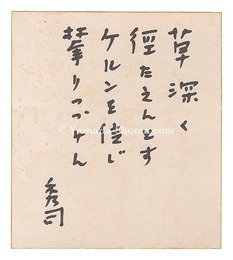 草深く
径たえんとす
ケルンを信じ
攀りつゞけん
秀司